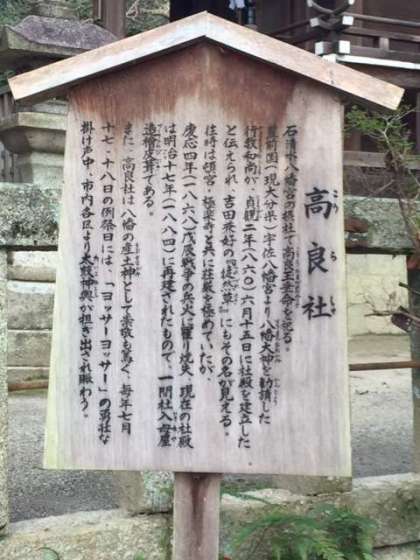 高良社
こうらしゃ
石清水八幡宮の摂社で高良玉垂命を祀る。
豊前国(現大分県)宇佐八幡宮より八幡大神を勧請した
行教和尚が、貞観二年(八六〇)六月十五日に社殿を建立した
と伝えられ、吉田兼好の『徒然草』にもその名が見える。
往時は頓宮・極楽寺と共に荘厳を極めていたが、
慶応四年(一八六八)戊辰戦争の兵火に罹り焼失、現在の社殿
は明治十七年(一八八四)に再建されたもので、一間社入母屋
造檜皮葺である。
また、高良社は八幡の産土神として崇敬も篤く、毎年七月
十七、十八日の例祭日には、「ヨッサーヨッサー」の勇壮な
掛け声中、市内各区より太鼓神輿が担ぎ出され賑わう。